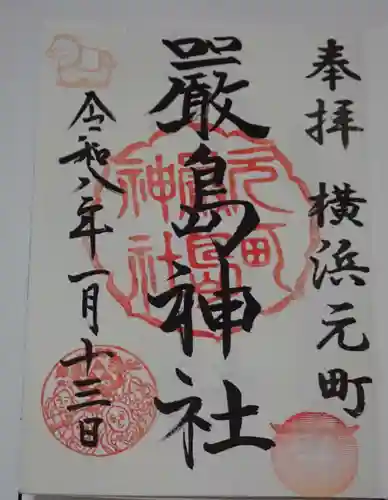 奉拝 横浜元町
嚴島神社
令和八年一月十三日
元町
嚴島
神社